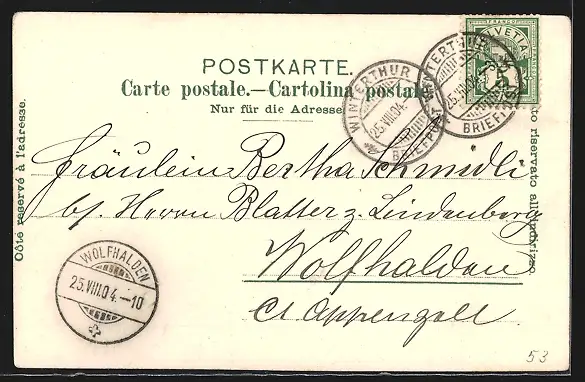 POSTKARTE.
Carte postale.—Cartolina postale.
Nur für die Adresse.
Côté réservé à l'adresse.
Fräulein Bertha Schmidli
bs. Herrn Blatter z. Lindenberg
Wolfhalden
Ct. Appenzell.
WINTERTHUR
25.VIII.04.
BRIEFAUFG
WINTERTHUR
25.VIII.04.
BRIEF
FRANCO
HELVETIA
5
WOLFHALDEN
25.VIII.04.-10
to riservato all'indirizzo
53